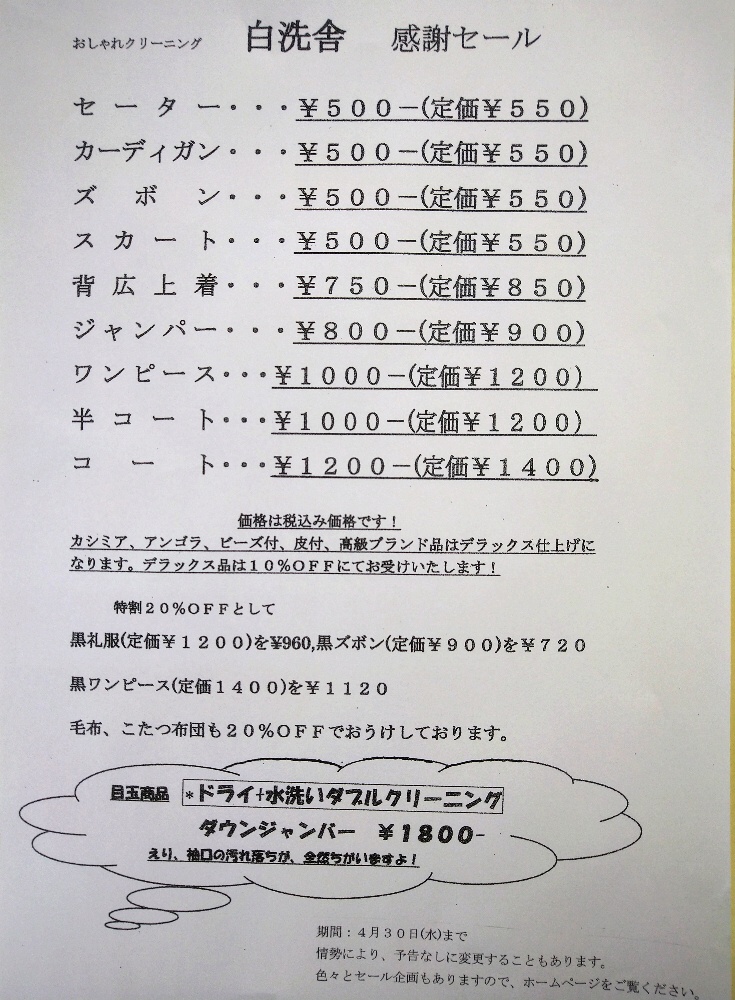 おしゃれクリーニング 白洗舎 感謝セール
セーター・・・￥５００－(定価￥５５０)
カーディガン・・・￥５００－(定価￥５５０)
ズボン・・・￥５００－(定価￥５５０)
スカート・・・￥５００－(定価￥５５０)
背広上着・・・￥７５０－(定価￥８５０)
ジャンパー・・・￥８００－(定価￥９００)
ワンピース・・・￥１０００－(定価￥１２００)
半コート・・・￥１０００－(定価￥１２００)
コート・・・￥１２００－(定価￥１４００)
価格は税込み価格です！
カシミア、アンゴラ、ビーズ付、皮付、高級ブランド品はデラックス仕上げに
なります。デラックス品は１０％ＯＦＦにてお受けいたします！
特割２０％ＯＦＦとして
黒礼服(定価￥１２００)を¥960,黒ズボン(定価￥９００)を￥７２０
黒ワンピース(定価１４００)を￥１１２０
毛布、こたつ布団も２０％ＯＦＦでおうけしております。
目玉商品 *ドライ+水洗いダブルクリーニング
ダウンジャンバー ￥１８００-
えり、袖口の汚れ落ちが、全然ちがいますよ！
期間：４月３０日(水)まで
情勢により、予告なしに変更することもあります。
色々とセール企画もありますので、ホームページをご覧ください。